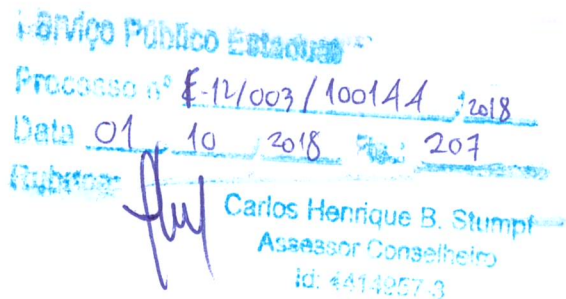 Serviço Público Estadual
Processo nº E-12/003/100144/2018
Data 01 / 10 / 2018 Fls.: 207
Rubrica:
Carlos Henrique B. Stumpf
Assessor Conselheiro
Id: 4414957-3